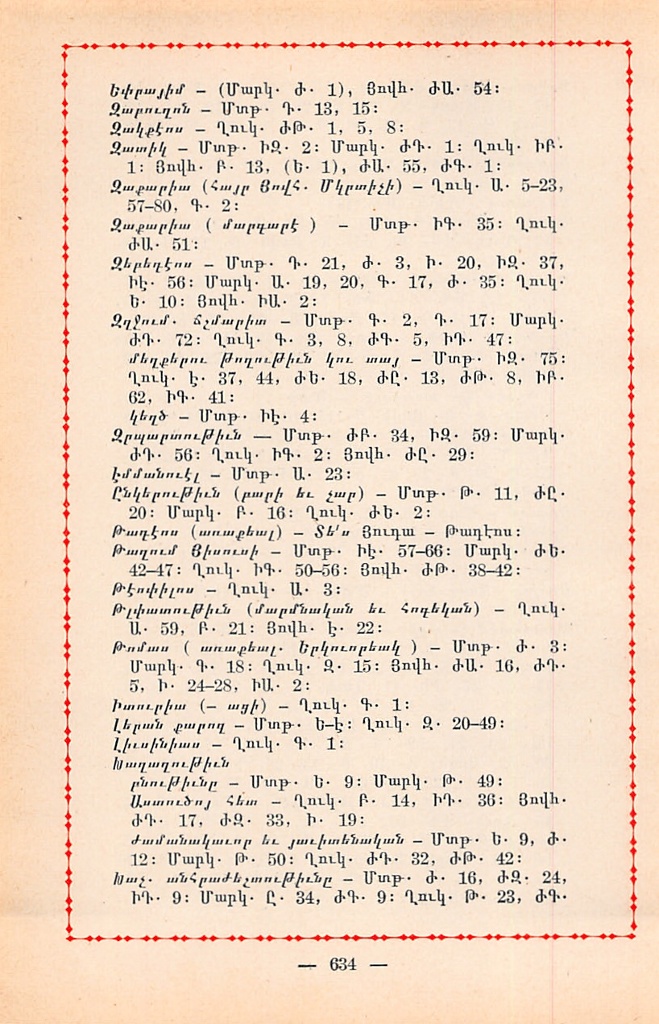 Եփրայիմ – (Մարկ. Ժ. 1), Յովհ. ԺԱ. 54:
Զաբուղոն – Մտթ. Դ. 13, 15:
Զակքէոս – Ղուկ. ԺԹ. 1, 5, 8:
Զատիկ – Մտթ. ԻԶ. 2: Մարկ. ԺԴ. 1: Ղուկ. ԻԲ.
1: Յովհ. Բ. 13, (Ե. 1), ԺԱ. 55, ԺԳ. 1:
Զաքարիա (Հայր Յովհ. Մկրտիչի) – Ղուկ. Ա. 5–23,
57–80, Գ. 2:
Զաքարիա ( մարգարէ ) – Մտթ. ԻԳ. 35: Ղուկ.
ԺԱ. 51:
Զեբեդէոս – Մտթ. Դ. 21, Ժ. 3, Ի. 20, ԻԶ. 37,
ԻԷ. 56: Մարկ. Ա. 19, 20, Գ. 17, Ժ. 35: Ղուկ.
Ե. 10: Յովհ. ԻԱ. 2:
Զղջում. ճշմարիտ – Մտթ. Գ. 2, Դ. 17: Մարկ.
ԺԴ. 72: Ղուկ. Գ. 3, 8, ԺԳ. 5, ԻԴ. 47:
մեղքերու թողութիւն կու տայ – Մտթ. ԻԶ. 75:
Ղուկ. Է. 37, 44, ԺԵ. 18, ԺԸ. 13, ԺԹ. 8, ԻԲ.
62, ԻԳ. 41:
կեղծ – Մտթ. ԻԷ. 4:
Զրպարտութիւն — Մտթ. ԺԲ. 34, ԻԶ. 59: Մարկ.
ԺԴ. 56: Ղուկ. ԻԳ. 2: Յովհ. ԺԸ. 29:
Էմմանուէլ – Մտթ. Ա. 23:
Ընկերութիւն (բարի եւ չար) – Մտթ. Թ. 11, ԺԸ.
20: Մարկ. Բ. 16: Ղուկ. ԺԵ. 2:
Թադէոս (առաքեալ) – Տե՛ս Յուդա – Թադէոս:
Թաղում Յիսուսի – Մտթ. ԻԷ. 57–66: Մարկ. ԺԵ.
42–47: Ղուկ. ԻԳ. 50–56: Յովհ. ԺԹ. 38–42:
Թէոփիլոս – Ղուկ. Ա. 3:
Թլփատութիւն (մարմնական եւ հոգեկան) – Ղուկ.
Ա. 59, Բ. 21: Յովհ. Է. 22:
Թովմաս ( առաքեալ. Երկուորեակ ) – Մտթ. Ժ. 3:
Մարկ. Գ. 18: Ղուկ. Զ. 15: Յովհ. ԺԱ. 16, ԺԴ.
5, Ի. 24–28, ԻԱ. 2:
Իտուրիա (– ացի) – Ղուկ. Գ. 1:
Լերան քարոզ – Մտթ. Ե–Է: Ղուկ. Զ. 20–49:
Լիւսինիաս – Ղուկ. Գ. 1:
Խաղաղութիւն
բնութիւնը – Մտթ. Ե. 9: Մարկ. Թ. 49:
Աստուծոյ հետ – Ղուկ. Բ. 14, ԻԴ. 36: Յովհ.
ԺԴ. 17, ԺԶ. 33, Ի. 19:
ժամանակաւոր եւ յաւիտենական – Մտթ. Ե. 9, Ժ.
12: Մարկ. Թ. 50: Ղուկ. ԺԴ. 32, ԺԹ. 42:
Խաչ. անհրաժեշտութիւնը – Մտթ. Ժ. 16, ԺԶ. 24,
ԻԴ. 9: Մարկ. Ը. 34, ԺԳ. 9: Ղուկ. Թ. 23, ԺԳ.
— 634 —